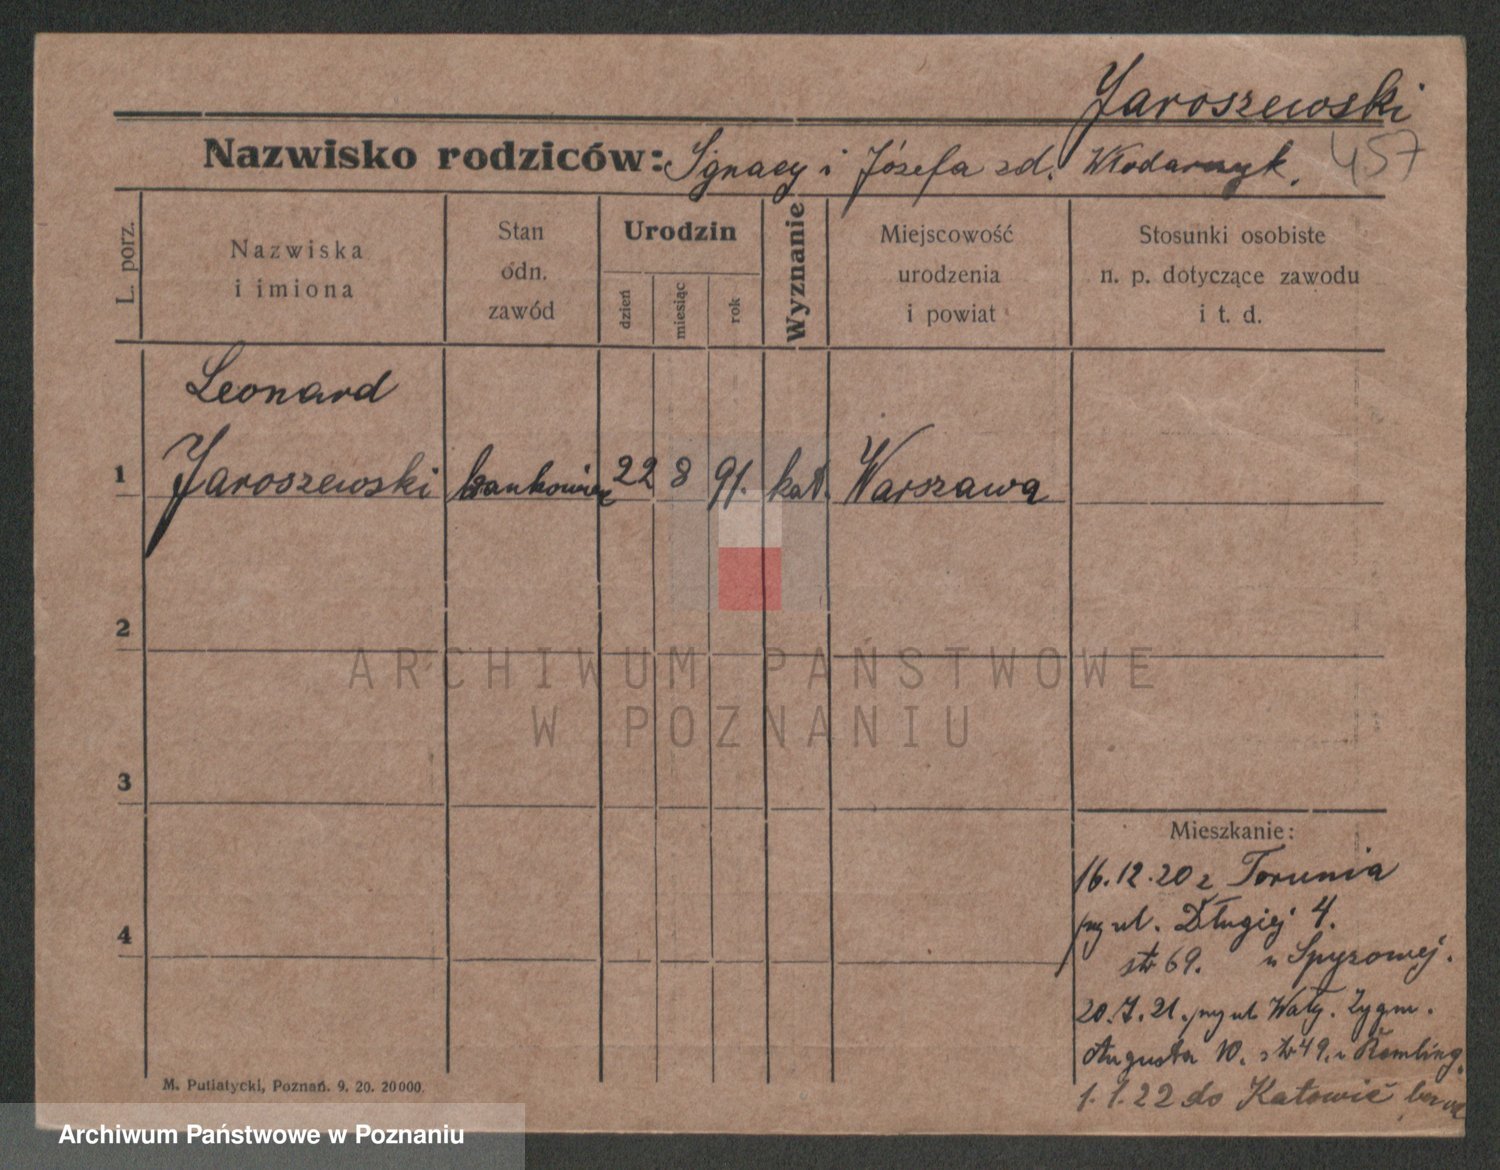 Jaroszewski
Nazwisko rodziców: Ignacy i Józefa zd. Włodarczyk.
457
L. porz.
Nazwiska
i imiona
Stan
odn.
zawód
Urodzin
dzień
miesiąc
rok
Wyznanie
Miejscowość
urodzenia
i powiat
Stosunki osobiste
n. p. dotyczące zawodu
i t. d.
Leonard
1 Jaroszewski bankowiec 22 8 91. kat. Warszawa
2
ARCHIWUM PAŃSTWOWE
W POZNANIU
3
Mieszkanie:
16.12.20 z Torunia
4
ul. Długiej 4.
str 69. u Spyrowej.
20.7.21. ul Wały. Zygm.
Augusta 10. str 49. u Remling.
1.1.22 do Katowic
M. Putiatycki, Poznań. 9. 20. 20000.
Archiwum Państwowe w Poznaniu